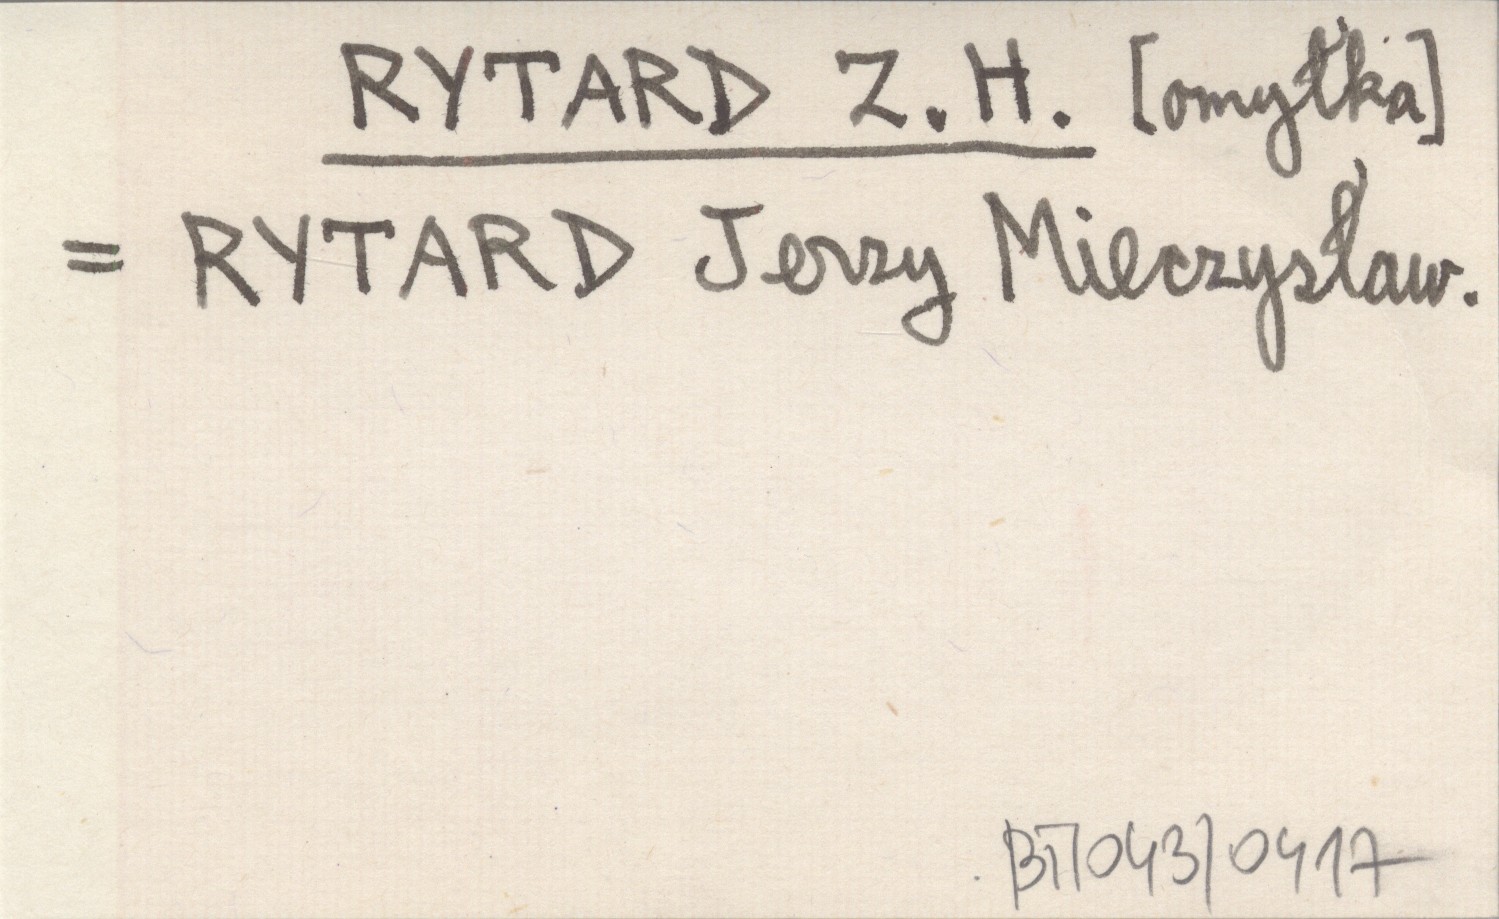 RYTARD Z.H. [omyłka]
= RYTARD Jerzy Mieczysław.
BT/043/0417